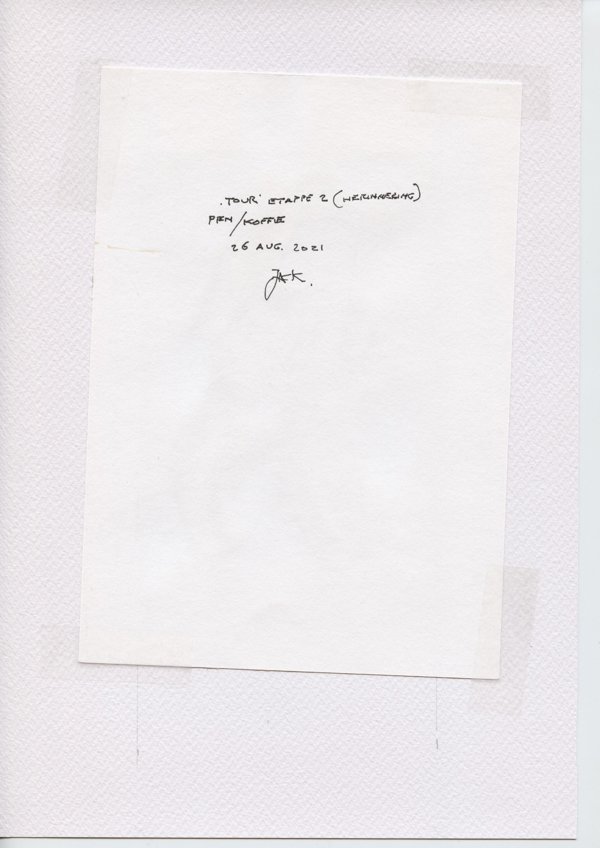 'TOUR' ETAPPE 2 (HERINNERING)
PEN/KOFFIE
26 AUG. 2021
JAK.